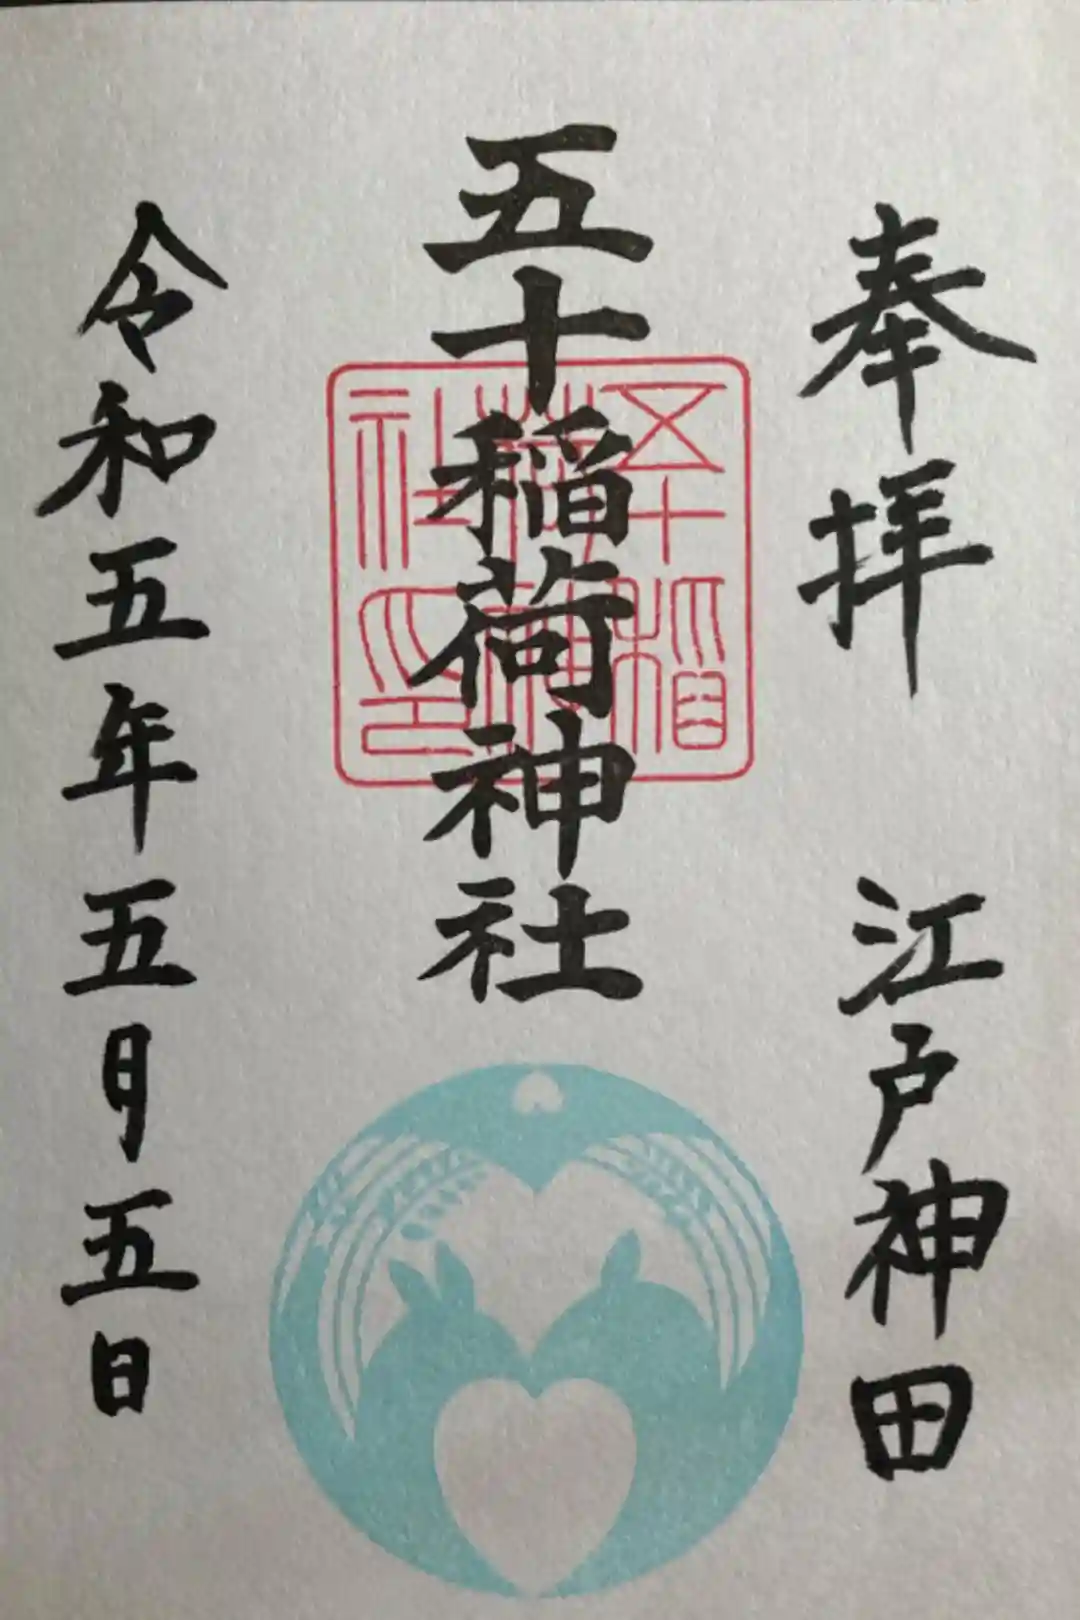 奉拝 江戸神田
五十稲荷神社
五十稲荷神社印
令和五年五月五日